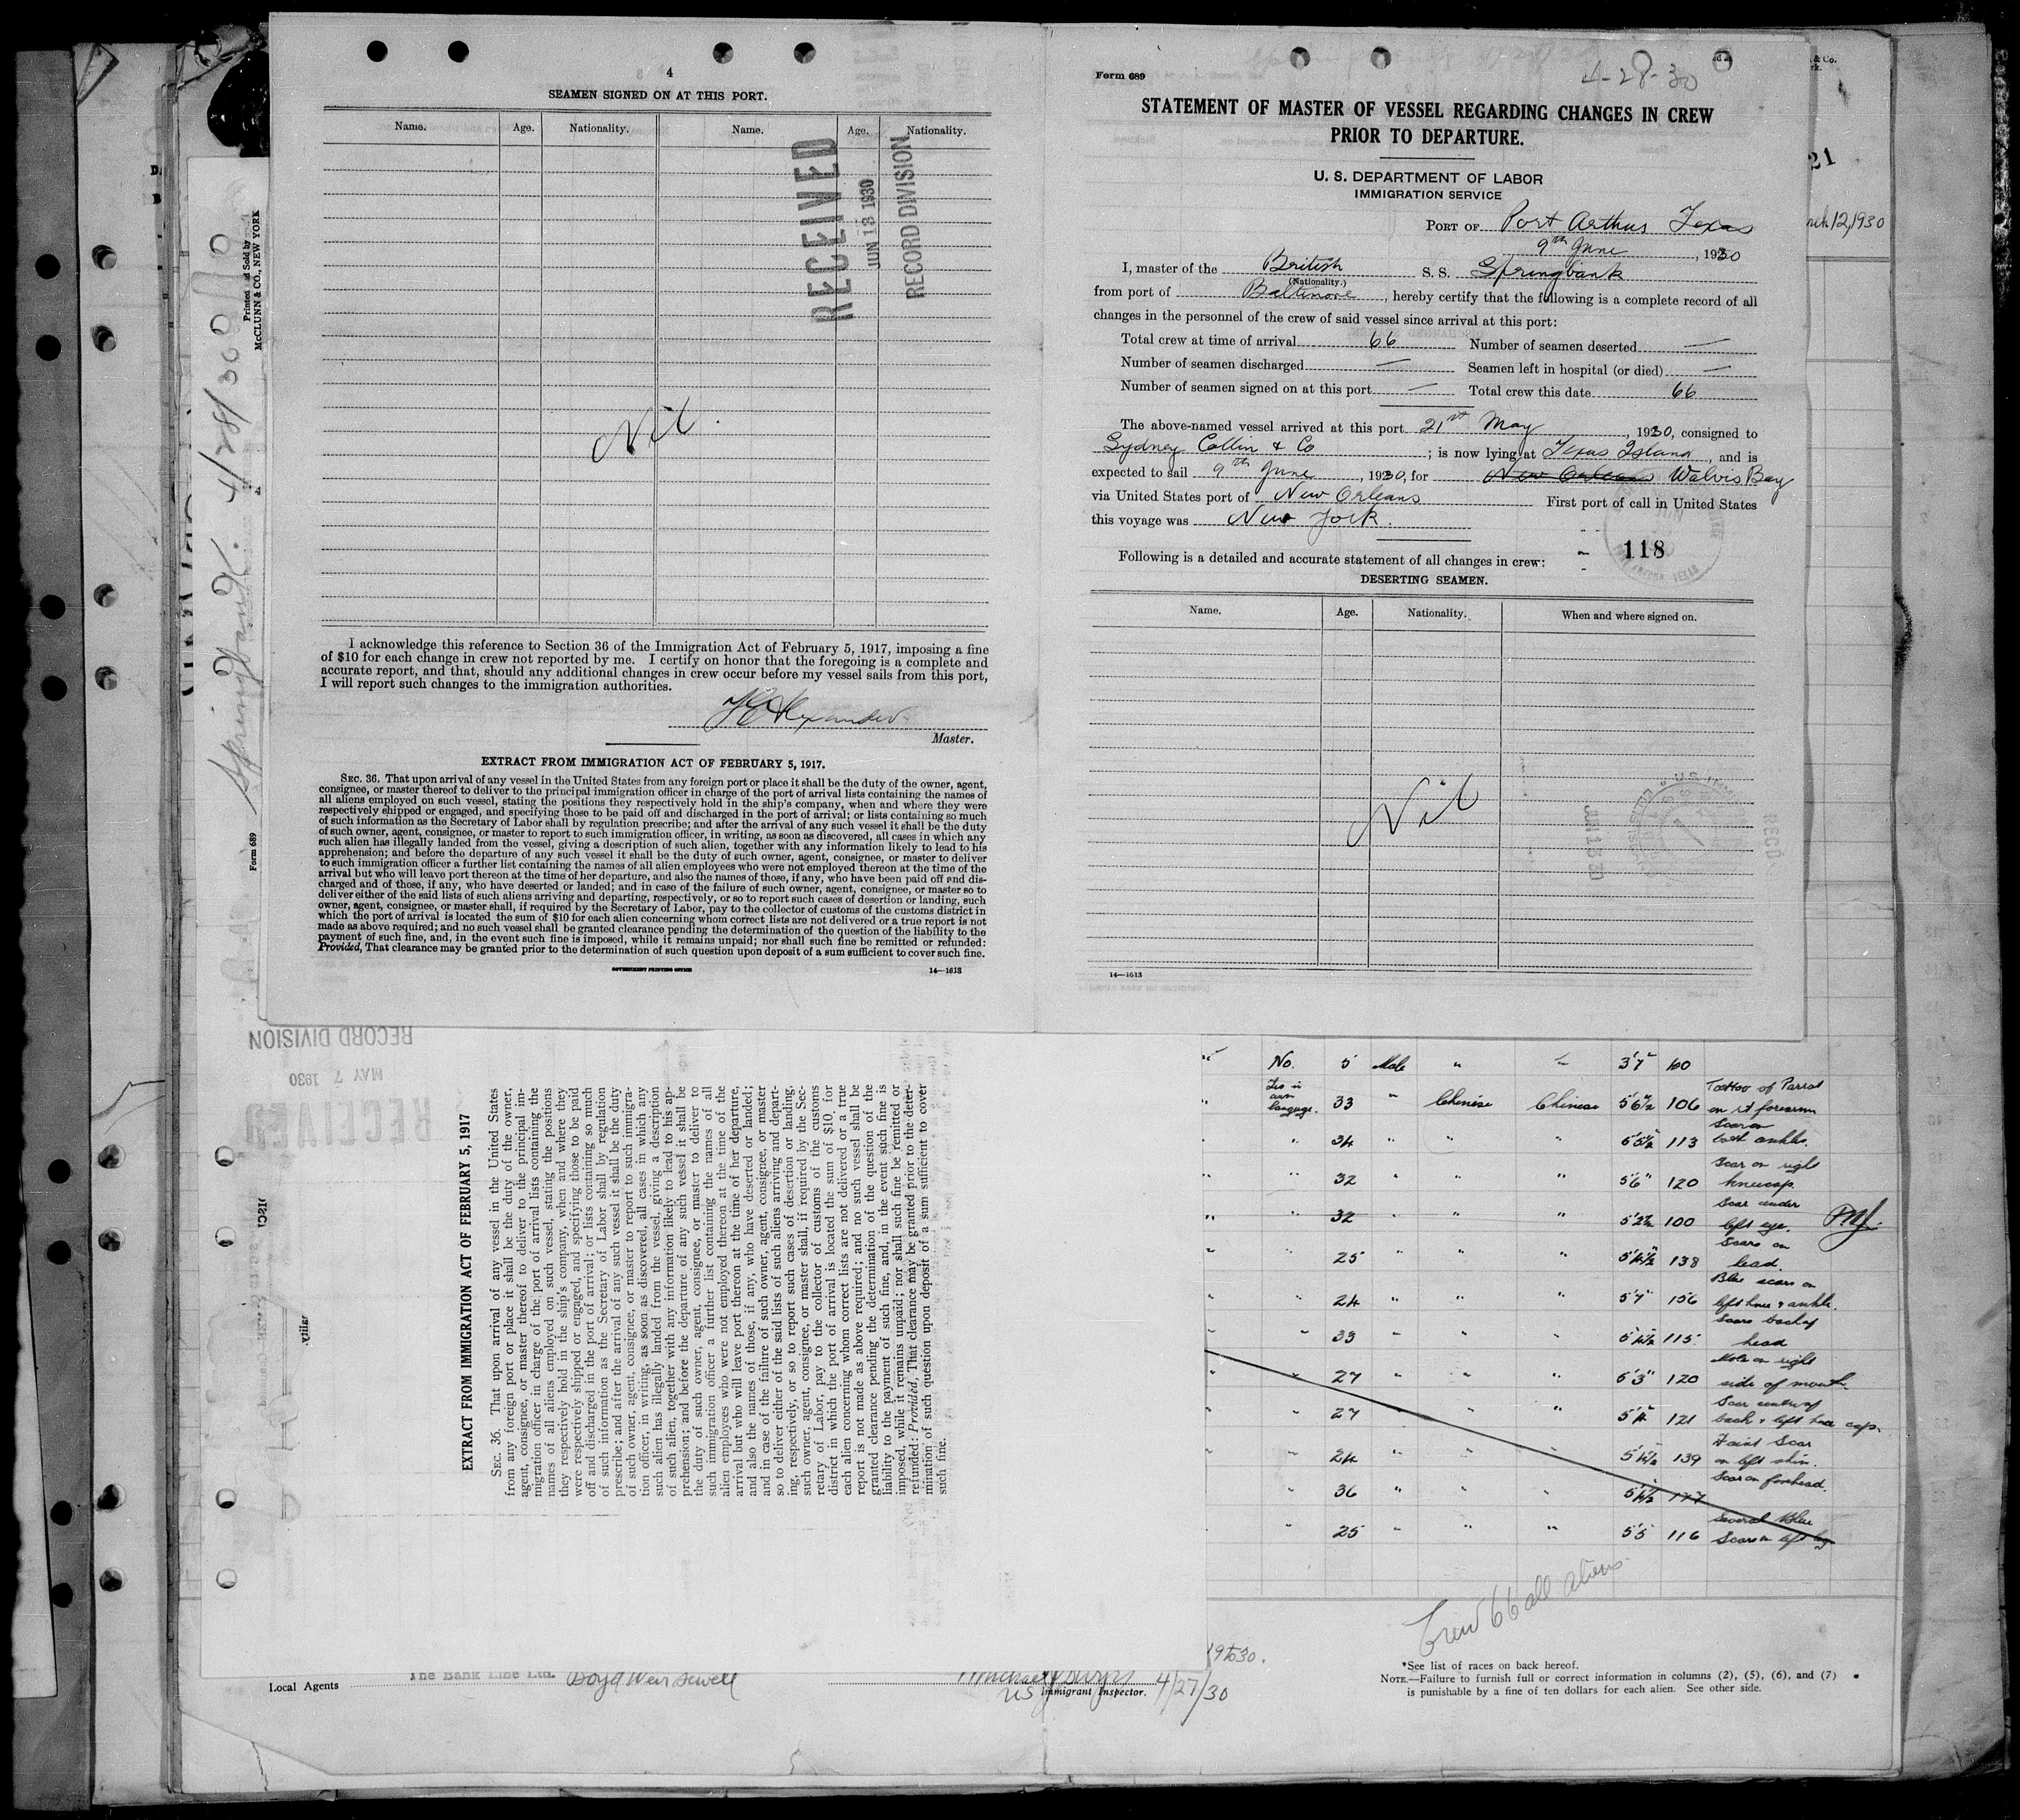 4
SEAMEN SIGNED ON AT THIS PORT.
Name. Age. Nationality. Name. Age. Nationality.
RECEIVED
JUN 13 1930
RECORD DIVISION
Nil
I acknowledge this reference to Section 36 of the Immigration Act of February 5, 1917, imposing a fine
of $10 for each change in crew not reported by me. I certify on honor that the foregoing is a complete and
accurate report, and that, should any additional changes in crew occur before my vessel sails from this port,
I will report such changes to the immigration authorities.
Master.
EXTRACT FROM IMMIGRATION ACT OF FEBRUARY 5, 1917.
SEC. 36. That upon arrival of any vessel in the United States from any foreign port or place it shall be the duty of the owner, agent,
consignee, or master thereof to deliver to the principal immigration officer in charge of the port of arrival lists containing the names of
all aliens employed on such vessel, stating the positions they respectively hold in the ship's company, when and where they were
respectively shipped or engaged, and specifying those to be paid off and discharged in the port of arrival; or lists containing so much
of such information as the Secretary of Labor shall by regulation prescribe; and after the arrival of any such vessel it shall be the duty
of such owner, agent, consignee, or master to report to such immigration officer, in writing, as soon as discovered, all cases in which any
such alien has illegally landed from the vessel, giving a description of such alien, together with any information likely to lead to his
apprehension; and before the departure of any such vessel it shall be the duty of such owner, agent, consignee, or master to deliver
to such immigration officer a further list containing the names of all alien employees who were not employed thereon at the time of the
arrival but who will leave port thereon at the time of her departure, and also the names of those, if any, who have been paid off and dis-
charged and of those, if any, who have deserted or landed; and in case of the failure of such owner, agent, consignee, or master so to
deliver either of the said lists of such aliens arriving and departing, respectively, or so to report such cases of desertion or landing, such
owner, agent, consignee, or master shall, if required by the Secretary of Labor, pay to the collector of customs of the customs district in
which the port of arrival is located the sum of $10 for each alien concerning whom correct lists are not delivered or a true report is not
made as above required; and no such vessel shall be granted clearance pending the determination of the question of the liability to the
payment of such fine, and, in the event such fine is imposed, while it remains unpaid; nor shall such fine be remitted or refunded:
Provided, That clearance may be granted prior to the determination of such question upon deposit of a sum sufficient to cover such fine.
GOVERNMENT PRINTING OFFICE 14—1613
Form 689
4-28-30
STATEMENT OF MASTER OF VESSEL REGARDING CHANGES IN CREW
PRIOR TO DEPARTURE.
U. S. DEPARTMENT OF LABOR
IMMIGRATION SERVICE
PORT OF Port Arthur Texas
9th June, 1930
I, master of the British S. S. Springbank
(Nationality.)
from port of Baltimore, hereby certify that the following is a complete record of all
changes in the personnel of the crew of said vessel since arrival at this port:
Total crew at time of arrival 66 Number of seamen deserted —
Number of seamen discharged — Seamen left in hospital (or died) —
Number of seamen signed on at this port — Total crew this date 66
The above-named vessel arrived at this port 21st May, 1930, consigned to
Sydney Collin & Co; is now lying at Texas Island, and is
expected to sail 9th June, 1930, for New Orleans Walvis Bay
via United States port of New Orleans First port of call in United States
this voyage was New York.
118
Following is a detailed and accurate statement of all changes in crew:
DESERTING SEAMEN.
Name. Age. Nationality. When and where signed on.
Nil
14—1613
& Co.
21
12, 1930
Springbank. 4/28/30
Printed and Sold by
McCLUNN & CO., NEW YORK
Form 689
RECORD DIVISION
MAY 7 1930
RECEIVED
EXTRACT FROM IMMIGRATION ACT OF FEBRUARY 5, 1917
SEC. 36. That upon arrival of any vessel in the United States
from any foreign port or place it shall be the duty of the owner,
agent, consignee, or master thereof to deliver to the principal im-
migration officer in charge of the port of arrival lists containing the
names of all aliens employed on such vessel, stating the positions
they respectively hold in the ship's company, when and where they
were respectively shipped or engaged, and specifying those to be paid
off and discharged in the port of arrival; or lists containing so much
of such information as the Secretary of Labor shall by regulation
prescribe; and after the arrival of any such vessel it shall be the duty
of such owner, agent, consignee, or master to report to such immigra-
tion officer, in writing, as soon as discovered, all cases in which any
such alien has illegally landed from the vessel, giving a description
of such alien, together with any information likely to lead to his ap-
prehension; and before the departure of any such vessel it shall be
the duty of such owner, agent, consignee, or master to deliver to
such immigration officer a further list containing the names of all
alien employees who were not employed thereon at the time of the
arrival but who will leave port thereon at the time of her departure,
and also the names of those, if any, who have deserted or landed;
and in case of the failure of such owner, agent, consignee, or master
so to deliver either of the said lists of such aliens arriving and depart-
ing, respectively, or so to report such cases of desertion or landing,
such owner, agent, consignee, or master shall, if required by the Sec-
retary of Labor, pay to the collector of customs of the customs
district in which the port of arrival is located the sum of $10, for
each alien concerning whom correct lists are not delivered or a true
report is not made as above required; and no such vessel shall be
granted clearance pending the determination of the question of the
liability to the payment of such fine, and, in the event such fine is
imposed, while it remains unpaid; nor shall such fine be remitted or
refunded: Provided, That clearance may be granted prior to the deter-
mination of such question upon deposit of a sum sufficient to cover
such fine.
No. 5 Male " 3'7" 60
Yes in own language. 33 " Chinese Chinese 5'6½ 106 Tattoo of Parrot on rt forearm
" 34 " " " 5'5½ 113 Scar on both ankles.
" 32 " " " 5'6" 120 Scar on right kneecap.
" 32 " " " 5'2½ 100 Scar under left eye.
" 25 " " " 5'4½ 138 Scars on head.
" 24 " " " 5'7" 156 Blue scars on left knee & ankle.
" 33 " " " 5'4½ 115 Scars back of head
" 27 " " " 5'3" 120 Mole on right side of mouth.
" 27 " " " 5'4" 121 Scar centre of back & left knee cap.
" 24 " " " 5'4½ 139 Faint Scar on left shin.
" 36 " " " 5'4½ 177 Scar on forehead.
" 25 " " " 5'5 116 Several Blue Scars on left leg
Crew 66 all aliens
*See list of races on back hereof.
NOTE.—Failure to furnish full or correct information in columns (2), (5), (6), and (7)
is punishable by a fine of ten dollars for each alien. See other side.
The Bank Line Ltd.
Local Agents Boyd Weir Sewell
US Immigrant Inspector. 4/27/30